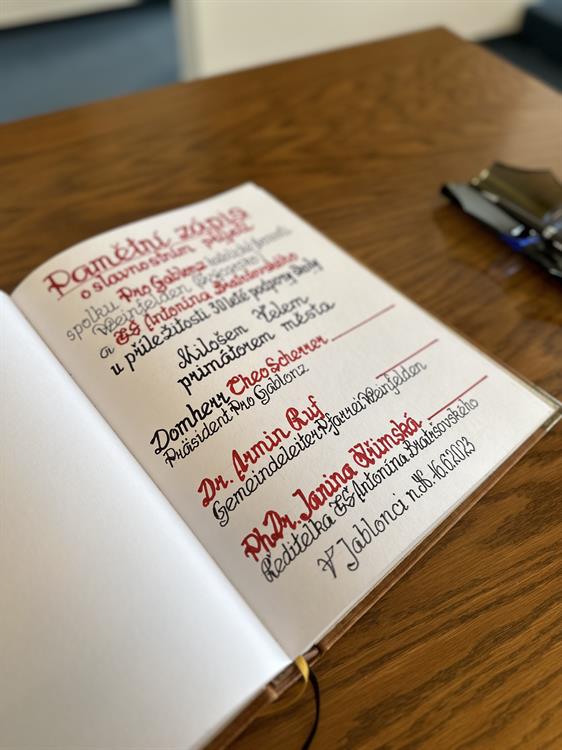 Pamětní zápis
o slavnostním přijetí
spolku Pro Gablonz katolické farnosti
Weinfelden
a ZŠ Antonína Bratršovského
u příležitosti 30 leté podpory školy
Milošem Velem
primátorem města
Domherr Theo Scherrer
Präsident Pro Gablonz
Dr. Armin Ruf
Gemeindeleiter Pfarrei Weinfelden
PhDr. Janina Křimská
Ředitelka ZŠ Antonína Bratršovského
V Jablonci n.N. 16.6.2023